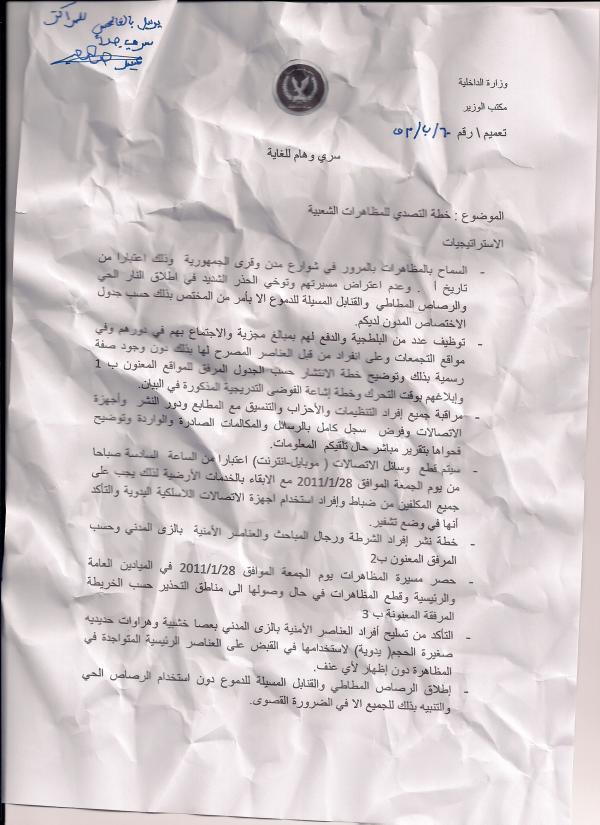 يرسل بالفاكس للمراكز
وزارة الداخلية
مكتب الوزير
تعميم \ رقم ٦٠/ب/٥٣
سري وهام للغاية
الموضوع : خطة التصدي للمظاهرات الشعبية
الاستراتيجيات
- السماح بالمظاهرات بالمرور في شوارع مدن وقرى الجمهورية وذلك اعتبارا من
تاريخ أ . وعدم اعتراض مسيرتهم وتوخي الحذر الشديد في اطلاق النار الحي
والرصاص المطاطي والقنابل المسيلة للدموع الا بأمر من المختص بذلك حسب جدول
الاختصاص المدون لديكم.
- توظيف عدد من البلطجية والدفع لهم بمبالغ مجزية والاجتماع بهم في دورهم وفي
مواقع التجمعات وعلى انفراد من قبل العناصر المصرح لها بذلك دون وجود صفة
رسمية بذلك وتوضيح خطة الانتشار حسب الجدول المرفق للمواقع المعنون ب 1
وإبلاغهم بوقت التحرك وخطة إشاعة الفوضى التدريجية المذكورة في البيان.
- مراقبة جميع إفراد التنظيمات والأحزاب والتنسيق مع المطابع ودور النشر وأجهزة
الاتصالات وفرض سجل كامل بالرسائل والمكالمات الصادرة والواردة وتوضيح
فحواها بتقرير مباشر حال تلقيكم المعلومات.
- سيتم قطع وسائل الاتصالات ( موبايل-انترنت) اعتبارا من الساعة السادسة صباحا
من يوم الجمعة الموافق 2011/1/28 مع الابقاء بالخدمات الأرضية لذلك يجب على
جميع المكلفين من ضباط وإفراد استخدام اجهزة الاتصالات اللاسلكية اليدوية والتأكد
أنها في وضع تشفير.
- خطة نشر إفراد الشرطة ورجال المباحث والعناصر الأمنية بالزى المدني وحسب
المرفق المعنون ب2
- حصر مسيرة المظاهرات يوم الجمعة الموافق 2011/1/28 في الميادين العامة
والرئيسية وقطع المظاهرات في حال وصولها الى مناطق التحذير حسب الخريطة
المرفقة المعنونة ب 3
- التأكد من تسليح أفراد العناصر الأمنية بالزى المدني بعصا خشبية وهراوات حديديه
صغيرة الحجم( يدوية) لاستخدامها في القبض على العناصر الرئيسية المتواجدة في
المظاهرة دون إظهار لأي عنف.
- إطلاق الرصاص المطاطي والقنابل المسيلة للدموع دون استخدام الرصاص الحي
والتنبيه بذلك للجميع الا في الضرورة القصوى.